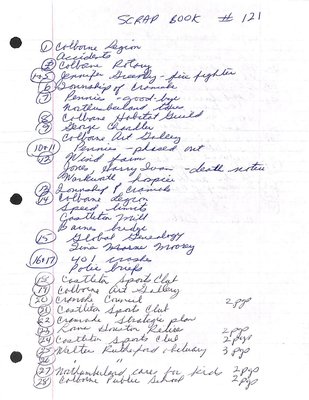 SCRAP BOOK # 121
1 Colborne Legion
Accidents
2 Colborne Rotary
Jennifer - fire fighter
6 Township of Cramahe
7 Pennies - good-bye
Northumberland
8 Colborne Habitat Build
9 George Chandler
Colborne Art Gallery
10+11 Pennies - phased out
12 Wind farm
Jones, Harry Ivan - death notice
Warkworth hospice
13 Township Cramahe
14 Colborne Legion
Speed limits
Castleton Mill
Barnes bridge
15 Global Genealogy
16+17 401 crashes
Police briefs
18 Castleton Sports Club
19 Colborne Art Gallery
20 Cramahe Council 2pgs
21 Castleton Sports Club
22 Cramahe Strategic plan
23 Retires 2pgs
24 Castleton Sports Club 2pgs
25 Walter Rutherford obituary 3pgs
26 " "
27 Northumberland cares for kids 2pgs
28 Colborne Public School 2pgs